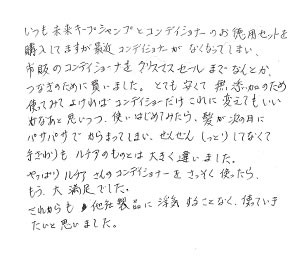 いつも未来キープシャンプとコンディショナーのお徳用セットを
購入してますが最近コンディショナーがなくなってしまい、
市販のコンディショーナをクリスマスセールまでなんとか、
つなぎのために買いました。とても安くて無添加のため
使ってみてよければコンディショナーだけこれに変えてもいい
かなあと思いつつ、使いはじめてみたら、髪が次の日に
パサパサでからまってしまい、ぜんぜんしっとりしてなくて
手ざわりもルチアのものとは大きく違いました。
やっぱりルチアさんのコンディショナーをさっそく使ったら、
もう、大満足でした。
これからも他社製品に浮気することなく、使っていき
たいと思いました。